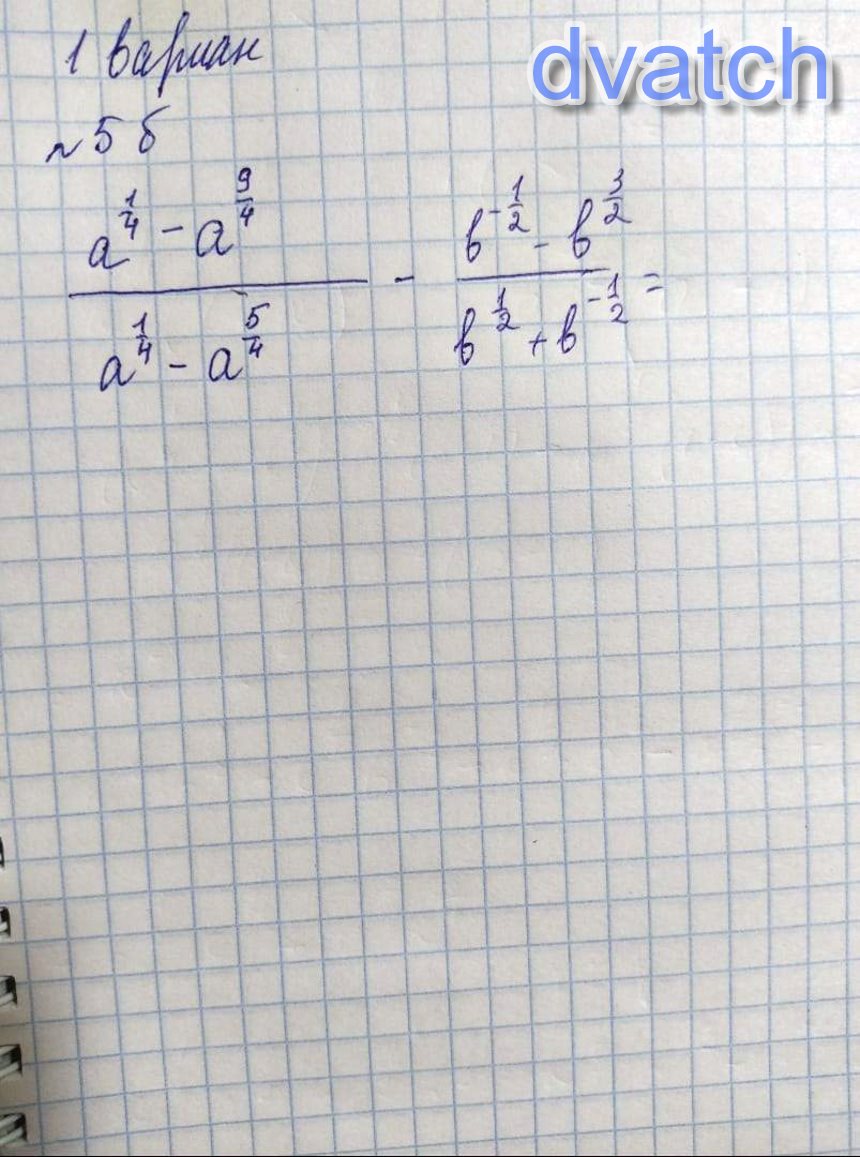 dvatch
1 вариан
№5 б
a^{\frac{1}{4}} - a^{\frac{9}{4}} / a^{\frac{1}{4}} - a^{\frac{5}{4}} - b^{-\frac{1}{2}} - b^{\frac{3}{2}} / b^{\frac{1}{2}} + b^{-\frac{1}{2}} =